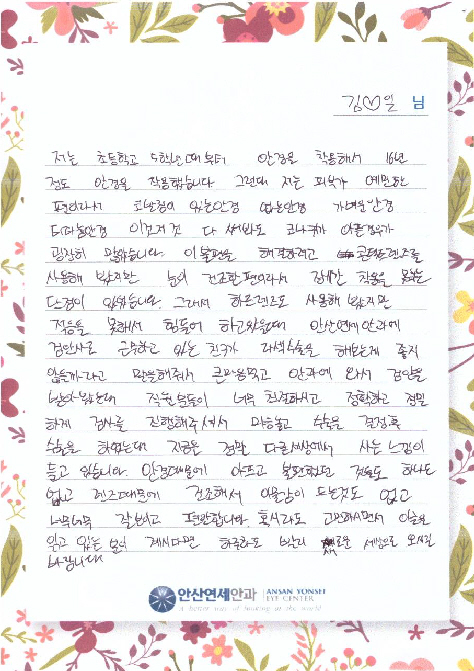 김♡일 님
저는 초등학교 5학년때부터 안경을 착용해서 16년
정도 안경을 착용했습니다 그런데 저는 피부가 예민한
편이라서 코받침이 있는안경 없는안경 가벼운안경
이것저것 다 써봐도 코나 귀가 아픈경우가
굉장히 많았습니다. 이 불편을 해결하려고 콘택트렌즈를
사용해 봤지만 눈이 건조한편이라서 장시간 착용을 못하는
단점이 있었습니다. 그래서 하드렌즈도 사용해 봤지만
적응을 못해서 힘들어 하고있을때 안산연세안과에
검안사로 근무하고 있는 친구가 라섹수술을 해보는게 좋지
않을까라고 말을해줘서 큰마음먹고 안과에 와서 검안을
받아 봤는데 직원분들이 너무 친절하시고 정확하고 정밀
하게 검사를 진행해주셔서 마음놓고 수술을 결정후
수술을 하였는데 지금은 정말 다른세상에서 사는 느낌이
들고 있습니다. 안경때문에 아프고 불편했던 것들도 하나도
없고 렌즈때문에 건조해서 이물감이 드는것도 없고
너무너무 잘보이고 편안합니다. 혹시라도 고민하시면서 이글을
읽고 있는 분이 계시다면 하루라도 빨리 새로운 세상으로 오시길
바랍니다
안산연세안과 ANSAN YONSEI
EYE CENTER
A better way of looking at the world